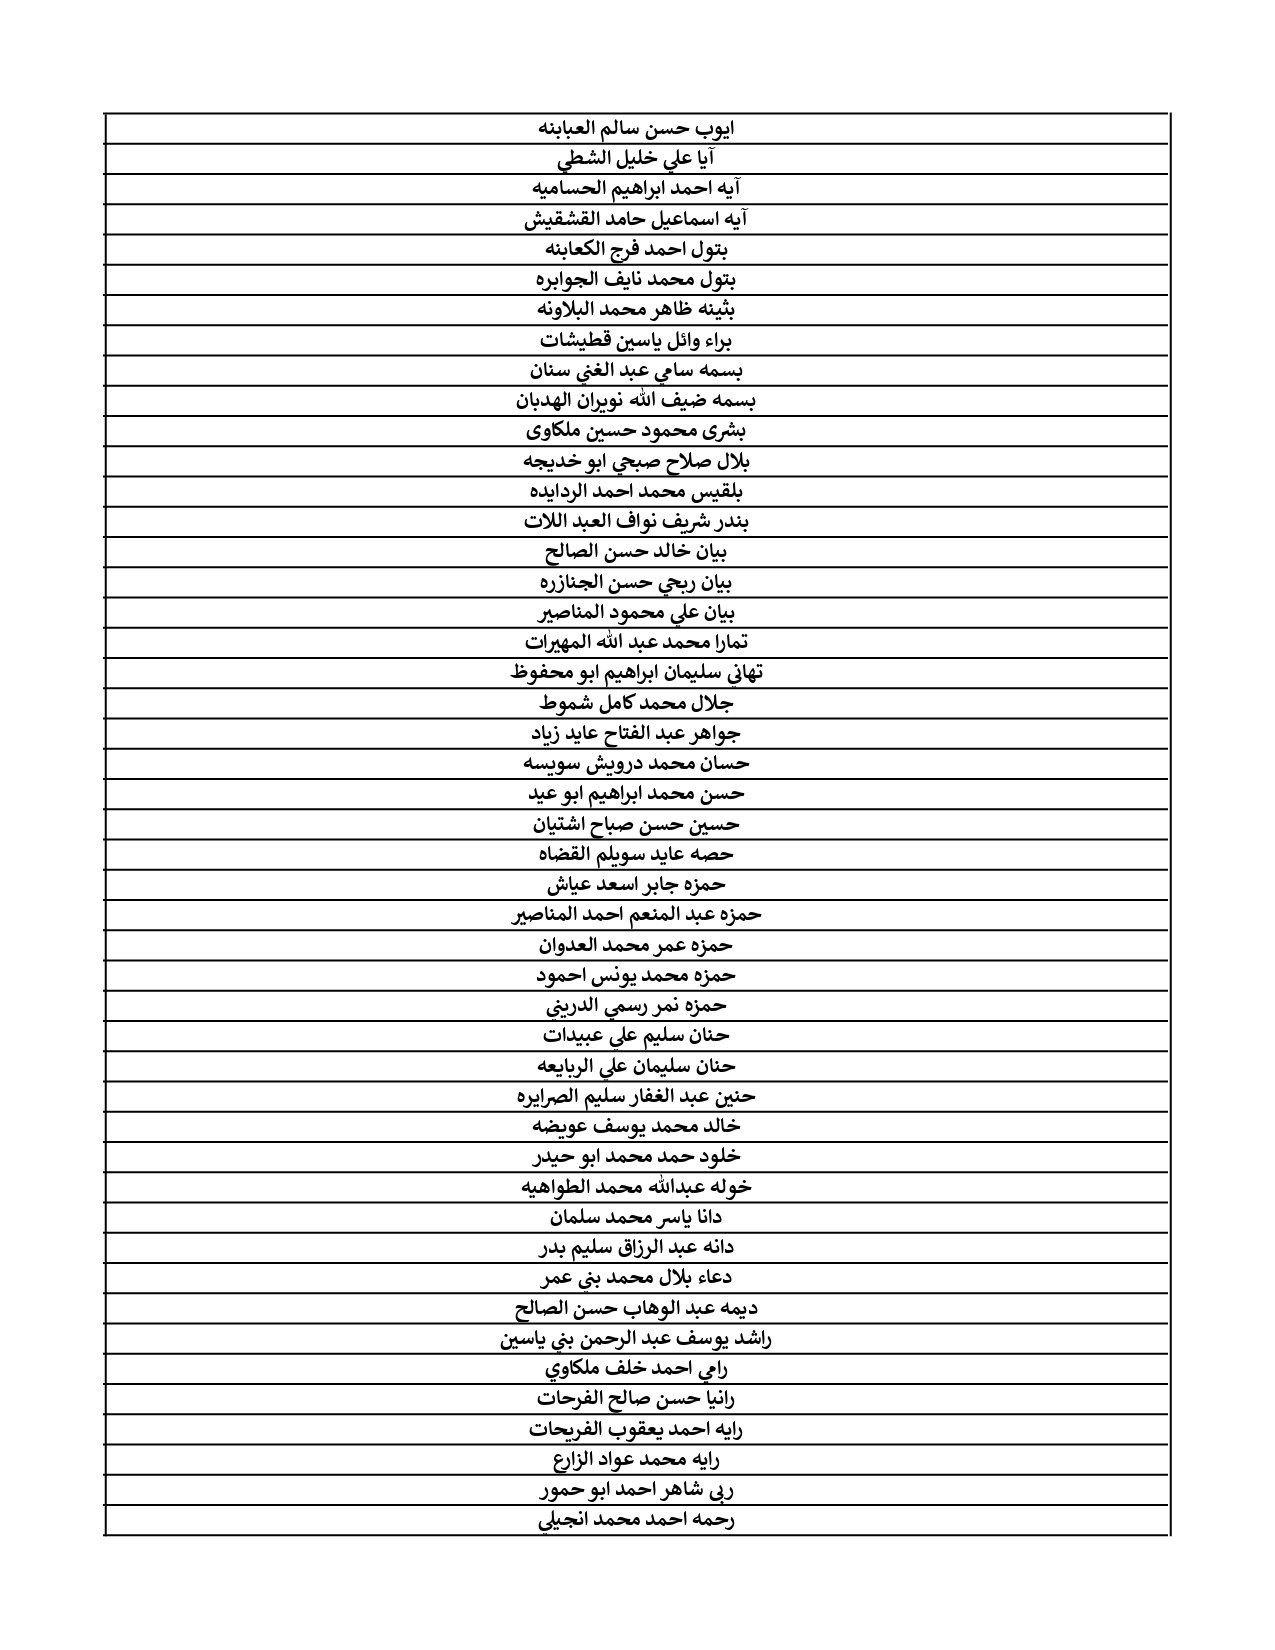 ايوب حسن سالم العبابنه
آيا علي خليل الشطي
آيه احمد ابراهيم الحساميه
آيه اسماعيل حامد القشقيش
بتول احمد فرج الكعابنه
بتول محمد نايف الجوابره
بثينه ظاهر محمد البلاونه
براء وائل ياسين قطيشات
بسمه سامي عبد الغني سنان
بسمه ضيف الله نويران الهدبان
بشرى محمود حسين ملكاوى
بلال صلاح صبحي ابو خديجه
بلقيس محمد احمد الردايده
بندر شريف نواف العبد اللات
بيان خالد حسن الصالح
بيان ربحي حسن الجنازره
بيان علي محمود المناصير
تمارا محمد عبد الله المهيرات
تهاني سليمان ابراهيم ابو محفوظ
جلال محمد كامل شموط
جواهر عبد الفتاح عايد زياد
حسان محمد درويش سويسه
حسن محمد ابراهيم ابو عيد
حسين حسن صباح اشتيان
حصه عايد سويلم القضاه
حمزه جابر اسعد عياش
حمزه عبد المنعم احمد المناصير
حمزه عمر محمد العدوان
حمزه محمد يونس احمود
حمزه نمر رسمي الدريني
حنان سليم علي عبيدات
حنان سليمان علي الربايعه
حنين عبد الغفار سليم الصرايره
خالد محمد يوسف عويضه
خلود حمد محمد ابو حيدر
خوله عبدالله محمد الطواهيه
دانا ياسر محمد سلمان
دانه عبد الرزاق سليم بدر
دعاء بلال محمد بني عمر
ديمه عبد الوهاب حسن الصالح
راشد يوسف عبد الرحمن بني ياسين
رامي احمد خلف ملكاوي
رانيا حسن صالح الفرحات
رايه احمد يعقوب الفريحات
رايه محمد عواد الزارع
ربى شاهر احمد ابو حمور
رحمه احمد محمد انجيلي